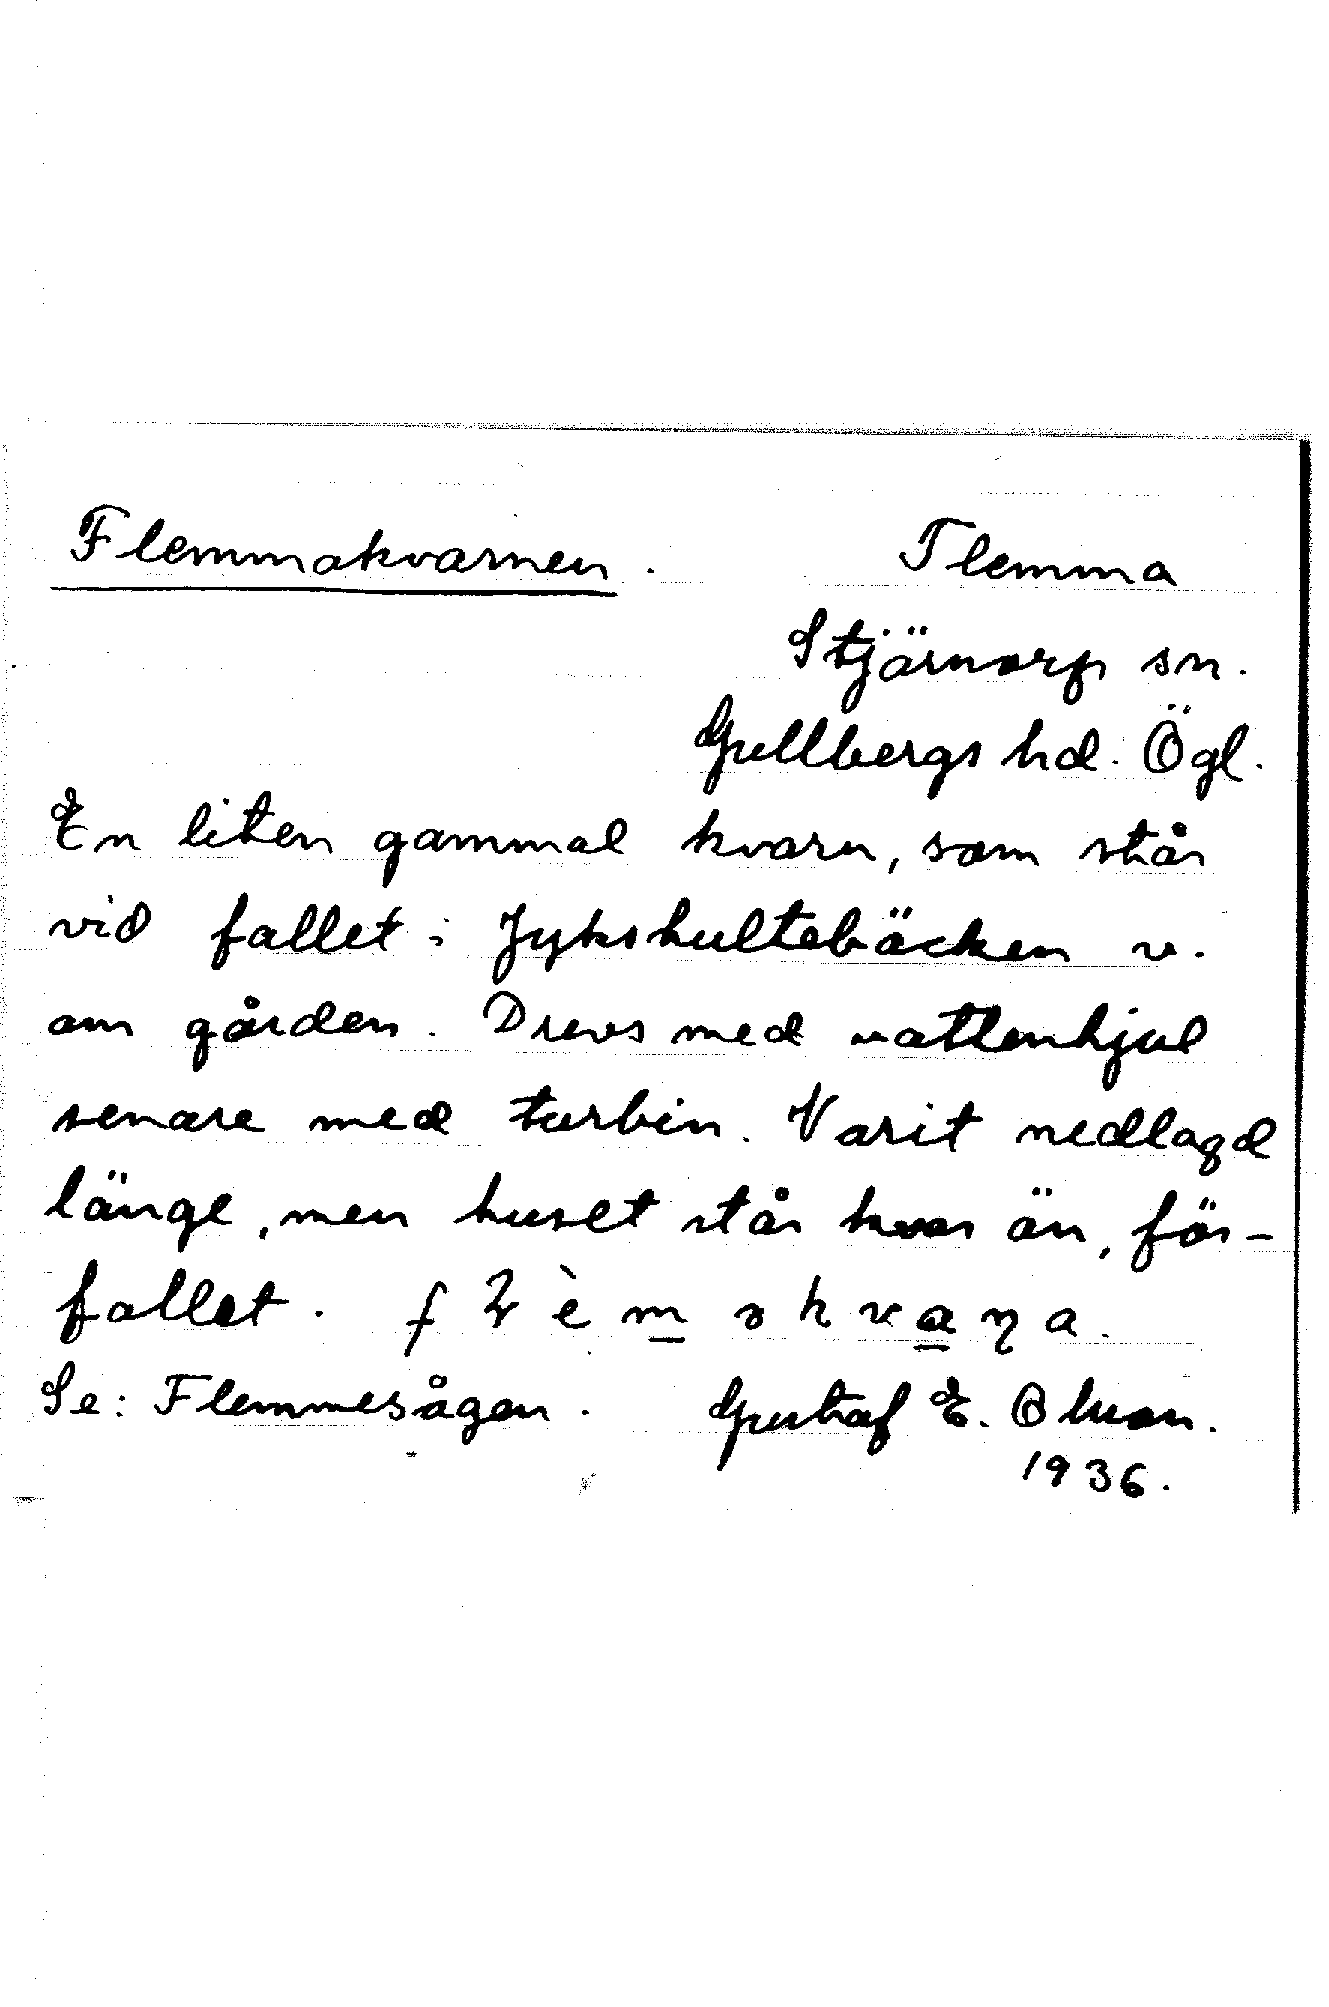 Flemmakvarnen. Flemma
Stjärnorp sn.
Gullbergs hd. Ögl.
En liten gammal kvarn, som står
vid fallet i Jykshultebäcken v.
om gården. Drevs med vattenhjul
senare med turbin. Varit nedlagd
länge, men huset står kvar än, för-
fallet.
Se: Flemmesågen. Gustaf E. Olson.
1936.